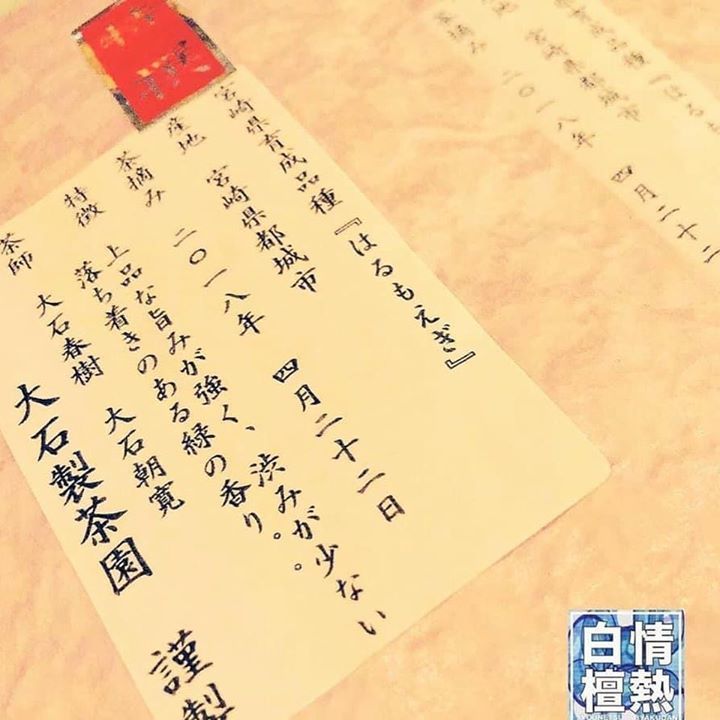 宮崎県育成品種『はるもえぎ』
産地 宮崎県都城市
茶摘み 二〇一八年 四月二十二日
特徴 上品な旨みが強く、渋みが少ない
落ち着きのある緑の香り。。
茶師 大石春樹 大石朝寛
大石製茶園 謹製
宮崎県都城市
二〇一八年 四月二十二
情熱
白檀